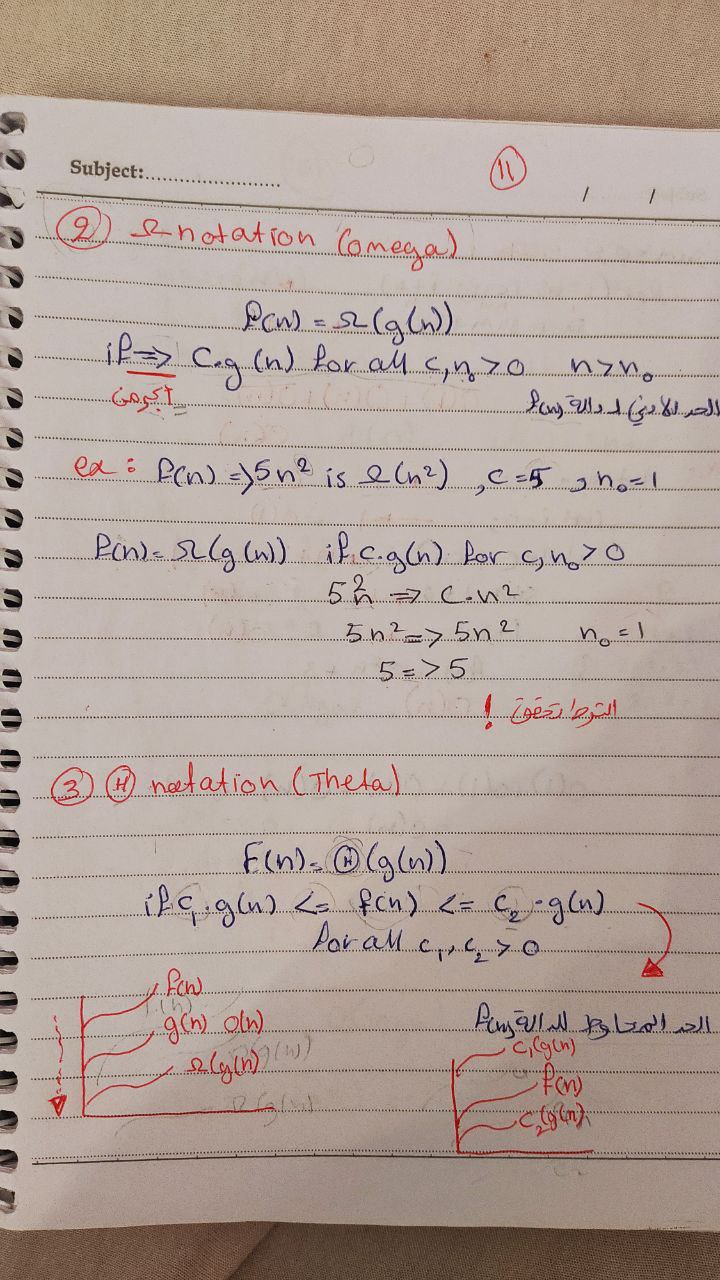 Subject:........................
11
/ /
② Ω notation (omega)
f(n) = Ω(g(n))
if => C.g(n) for all c, n₀ > 0 n > n₀
أكبر من =
الحد الأدنى لدالة f(n)
ex: f(n) => 5n² is Ω(n²) , c = 5 , n₀ = 1
f(n) = Ω(g(n)) if c.g(n) for c, n₀ > 0
5n² => C.n²
5n² => 5n² n₀ = 1
5 => 5
الشرط تحقق !
③ Ⓗ notation (Theta)
F(n) = Ⓗ (g(n))
if c₁.g(n) <= f(n) <= c₂.g(n)
for all c₁, c₂ > 0
f(n)
g(n) O(n)
Ω(g(n))
f(n) الحد المحاوط للدالة
c₁(g(n)
f(n)
c₂(g(n)